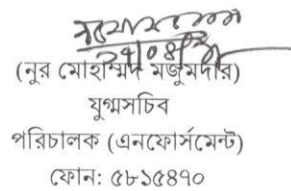 (নুর মোহাম্মদ মজুমদার)
যুগ্মসচিব
পরিচালক (এনফোর্সমেন্ট)
ফোন: ৫৮১৫৪৭০